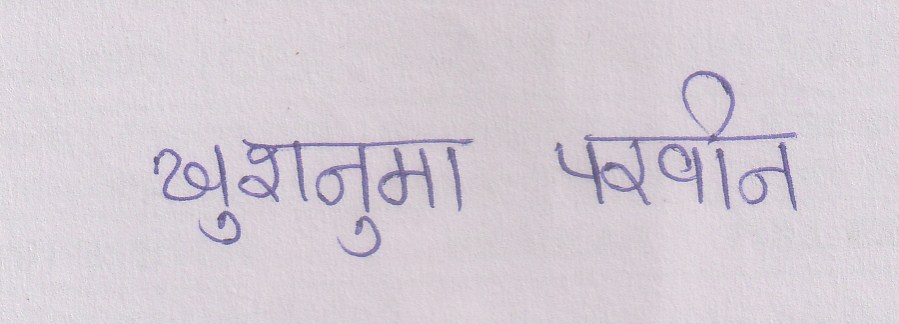 खुशनुमा परवीन